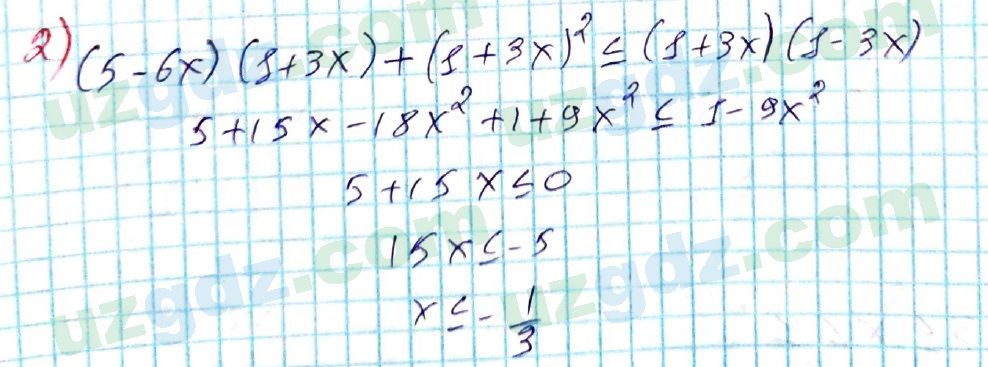 2) (5-6x)(1+3x)+(1+3x)² ≤ (1+3x)(1-3x)
5+15x-18x²+1+9x² ≤ 1-9x²
5+15x≤0
15x≤-5
x≤-1/3
uzgdz.com
uzgdz.com
uzgdz.com
uzgdz.com